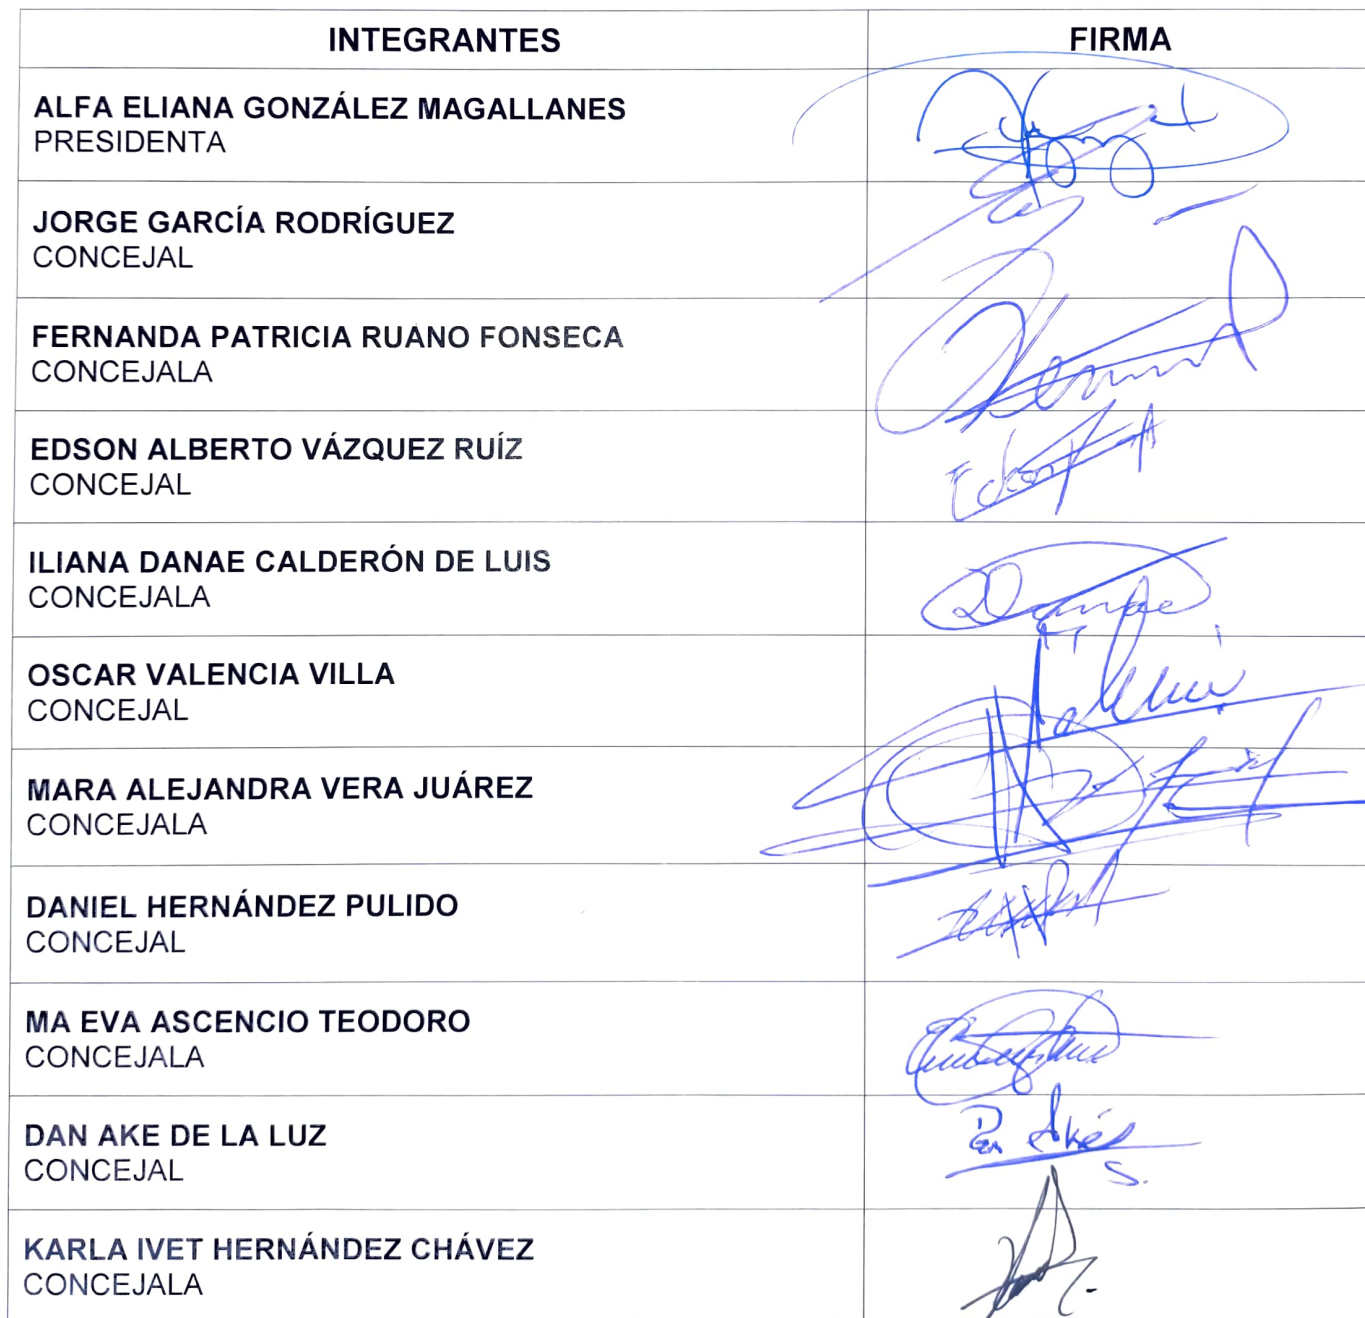 INTEGRANTES FIRMA
ALFA ELIANA GONZÁLEZ MAGALLANES
PRESIDENTA
JORGE GARCÍA RODRÍGUEZ
CONCEJAL
FERNANDA PATRICIA RUANO FONSECA
CONCEJALA
EDSON ALBERTO VÁZQUEZ RUÍZ
CONCEJAL
Edson
ILIANA DANAE CALDERÓN DE LUIS
CONCEJALA
Danae
OSCAR VALENCIA VILLA
CONCEJAL
MARA ALEJANDRA VERA JUÁREZ
CONCEJALA
DANIEL HERNÁNDEZ PULIDO
CONCEJAL
MA EVA ASCENCIO TEODORO
CONCEJALA
DAN AKE DE LA LUZ
CONCEJAL
KARLA IVET HERNÁNDEZ CHÁVEZ
CONCEJALA